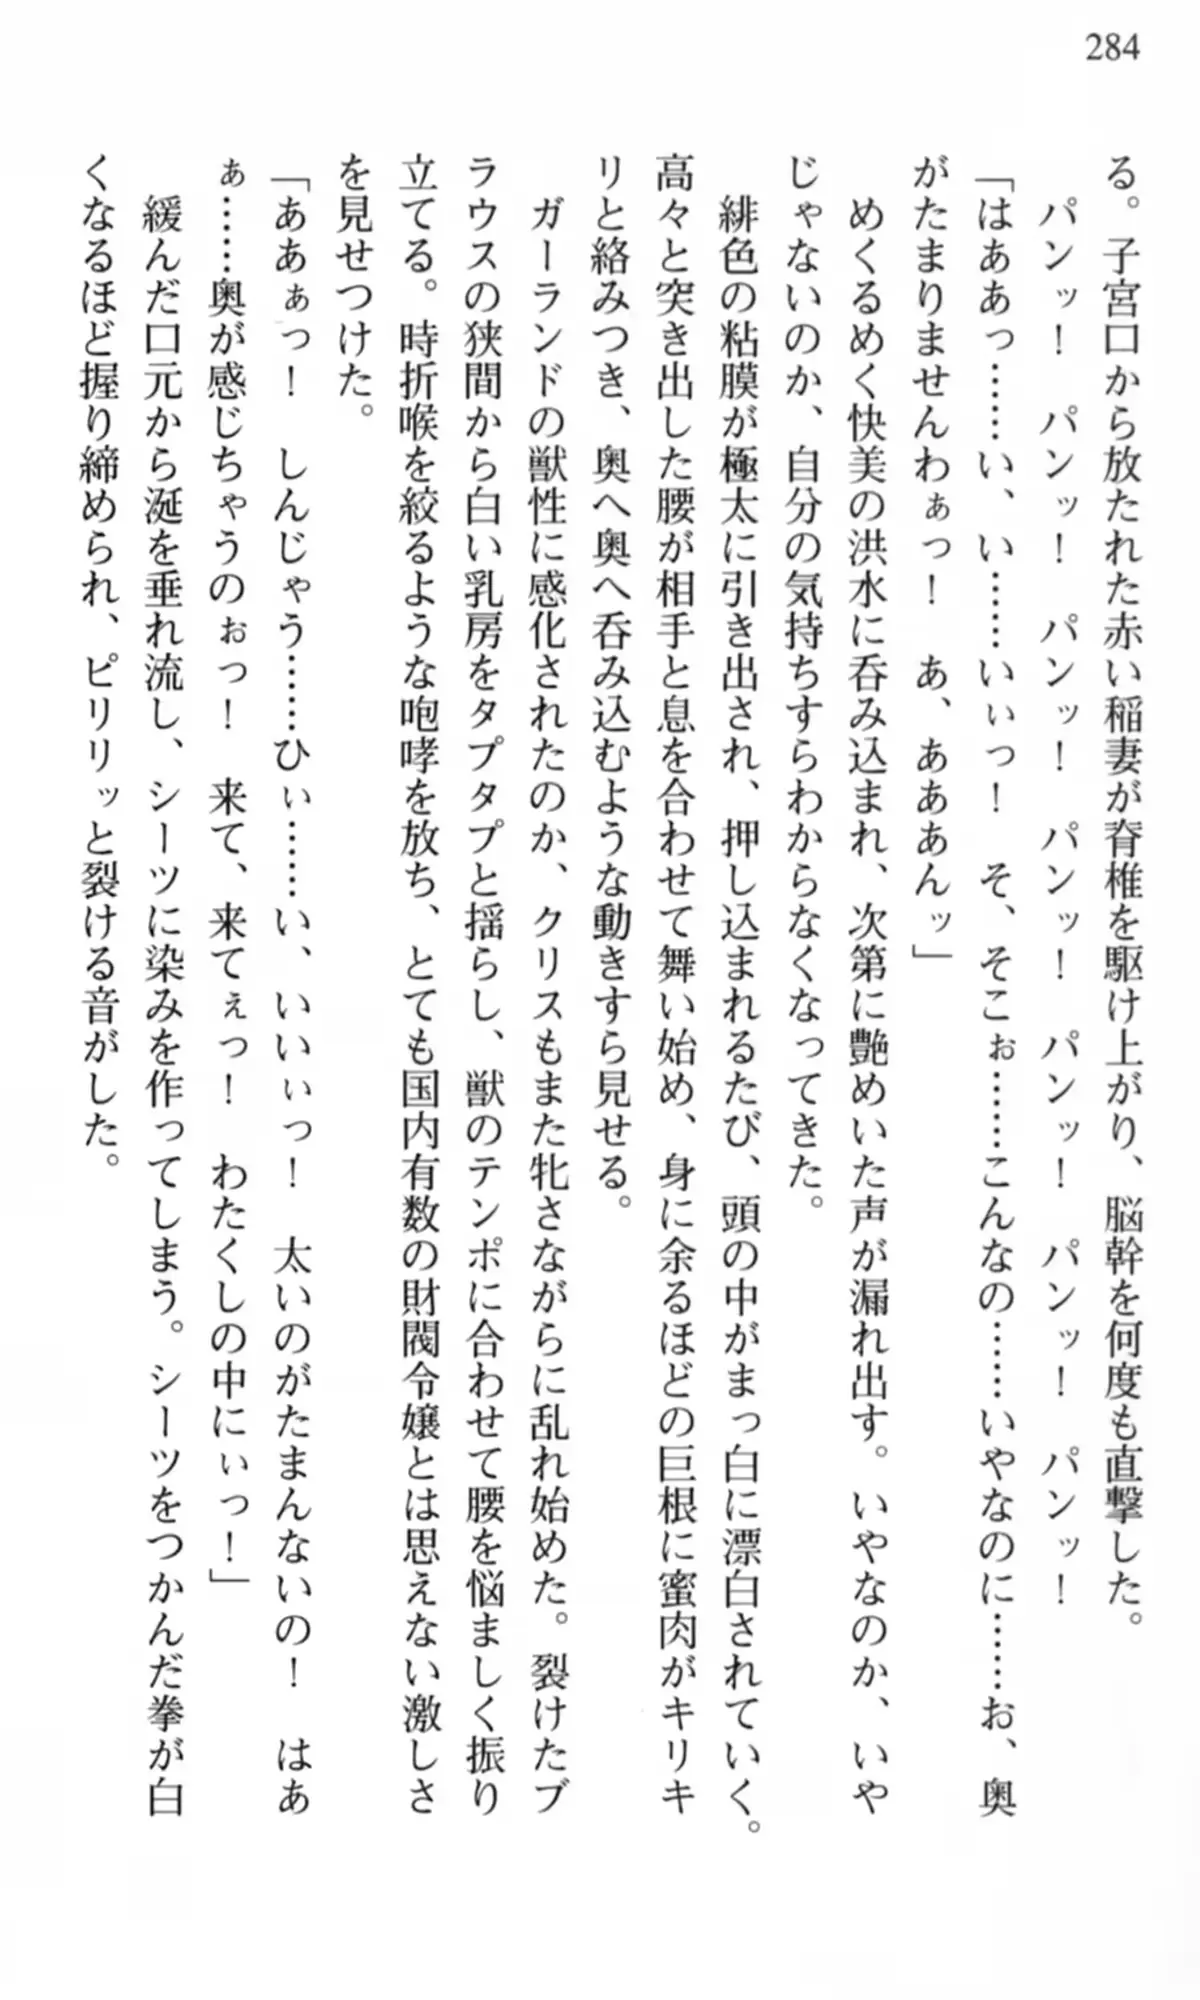 284
る。子宮口から放たれた赤い稲妻が脊椎を駆け上がり、脳幹を何度も直撃した。
　パンッ！　パンッ！　パンッ！　パンッ！　パンッ！　パンッ！　パンッ！
「はああっ……い、い……いぃっ！　そ、そこぉ……こんなの……いやなのに……お、奥
がたまりませんわぁっ！　あ、あああんッ」
　めくるめく快美の洪水に呑み込まれ、次第に艶めいた声が漏れ出す。いやなのか、いや
じゃないのか、自分の気持ちすらわからなくなってきた。
　緋色の粘膜が極太に引き出され、押し込まれるたび、頭の中がまっ白に漂白されていく。
高々と突き出した腰が相手と息を合わせて舞い始め、身に余るほどの巨根に蜜肉がキリキ
リと絡みつき、奥へ奥へ呑み込むような動きすら見せる。
　ガーランドの獣性に感化されたのか、クリスもまた牝さながらに乱れ始めた。裂けたブ
ラウスの狭間から白い乳房をタプタプと揺らし、獣のテンポに合わせて腰を悩ましく振り
立てる。時折喉を絞るような咆哮を放ち、とても国内有数の財閥令嬢とは思えない激しさ
を見せつけた。
「ああぁっ！　しんじゃう……ひぃ……い、いいぃっ！　太いのがたまんないの！　はあ
ぁ……奥が感じちゃうのぉっ！　来て、来てぇっ！　わたくしの中にぃっ！」
　緩んだ口元から涎を垂れ流し、シーツに染みを作ってしまう。シーツをつかんだ拳が白
くなるほど握り締められ、ピリリッと裂ける音がした。